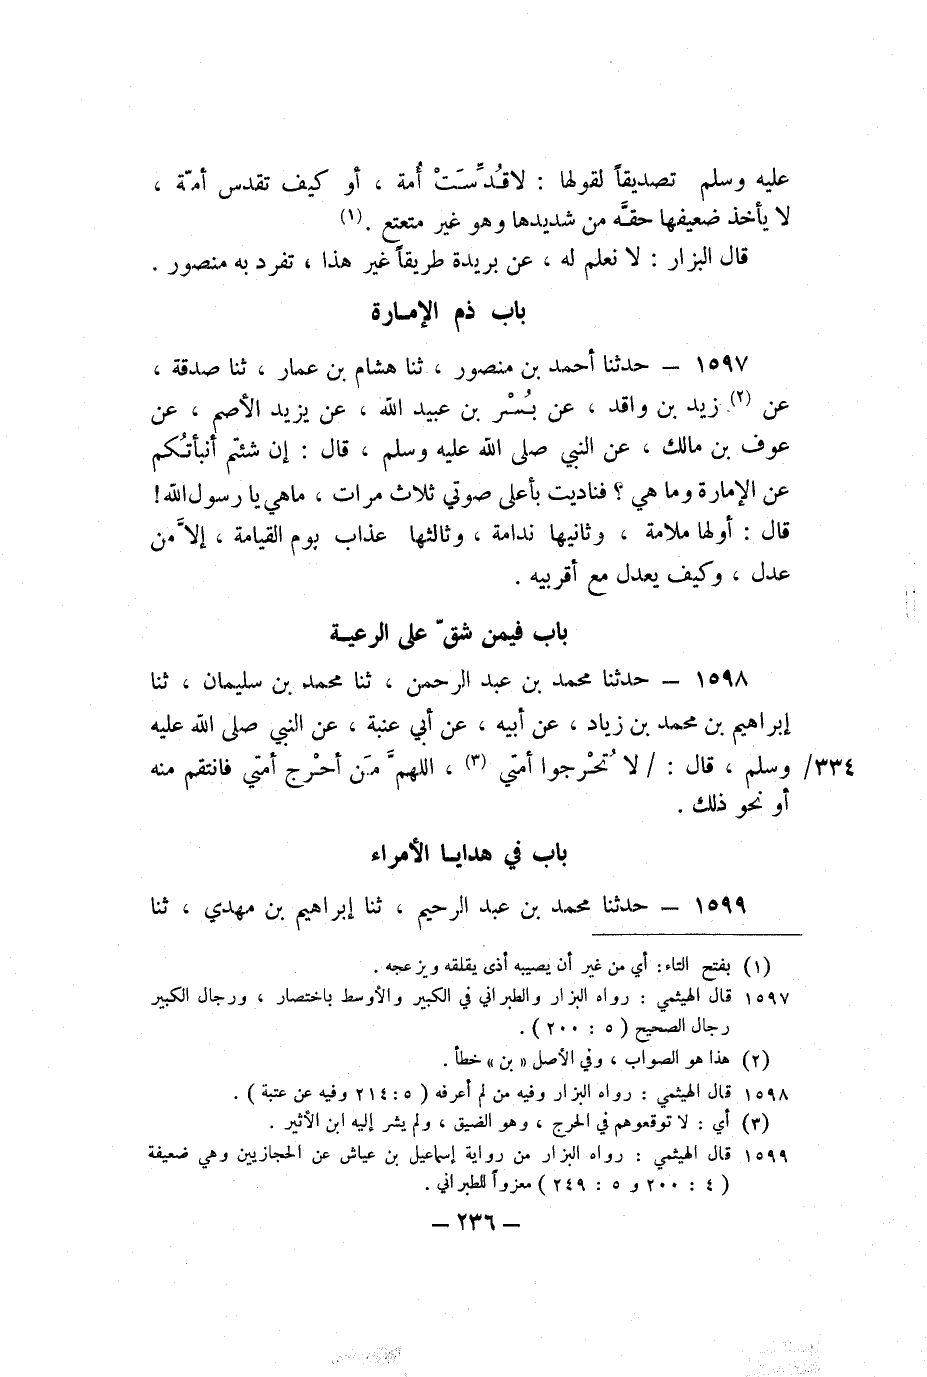 عليه وسلم تصديقاً لقولها : لاقُدِّسَتْ أُمة ، أو كيف تقدس أمّة ،
لا يأخذ ضعيفها حقَّه من شديدها وهو غير متعتع . (١)
قال البزار : لا نعلم له ، عن بريدة طريقاً غير هذا ، تفرد به منصور .
باب ذم الإمارة
١٥٩٧ – حدثنا أحمد بن منصور ، ثنا هشام بن عمار ، ثنا صدقة ،
عن (٢) زيد بن واقد ، عن بُسْر بن عبيد الله ، عن يزيد الأصم ، عن
عوف بن مالك ، عن النبي صلى الله عليه وسلم ، قال : إن شئتم أنبأتُكم
عن الإمارة وما هي ؟ فناديت بأعلى صوتي ثلاث مرات ، ماهي يا رسول الله !
قال : أولها ملامة ، وثانيها ندامة ، وثالثها عذاب يوم القيامة ، إلاَّ من
عدل ، وكيف يعدل مع أقربيه .
باب فيمن شقّ على الرعية
١٥٩٨ – حدثنا محمد بن عبد الرحمن ، ثنا محمد بن سليمان ، ثنا
إبراهيم بن محمد بن زياد ، عن أبيه ، عن أبي عنبة ، عن النبي صلى الله عليه
٣٣٤/ وسلم ، قال : / لا تُحْرجوا أمتي (٣) ، اللهمَّ مَن أحْرج أمتي فانتقم منه
أو نحو ذلك .
باب في هدايا الأمراء
١٥٩٩ – حدثنا محمد بن عبد الرحيم ، ثنا إبراهيم بن مهدي ، ثنا
(١) بفتح التاء : أي من غير أن يصيبه أذى يقلقه ويزعجه .
١٥٩٧ قال الهيثمي : رواه البزار والطبراني في الكبير والأوسط باختصار ، ورجال الكبير
رجال الصحيح ( ٥ : ٢٠٠ ) .
(٢) هذا هو الصواب ، وفي الأصل « بن » خطأ .
١٥٩٨ قال الهيثمي : رواه البزار وفيه من لم أعرفه ( ٥ : ٢١٤ وفيه عن عتبة ) .
(٣) أي : لا توقعوهم في الحرج ، وهو الضيق ، ولم يشر إليه ابن الأثير .
١٥٩٩ قال الهيثمي : رواه البزار من رواية إسماعيل بن عياش عن الحجازيين وهي ضعيفة
( ٤ : ٢٠٠ و ٥ : ٢٤٩ ) معزواً للطبراني .
– ٢٣٦ –